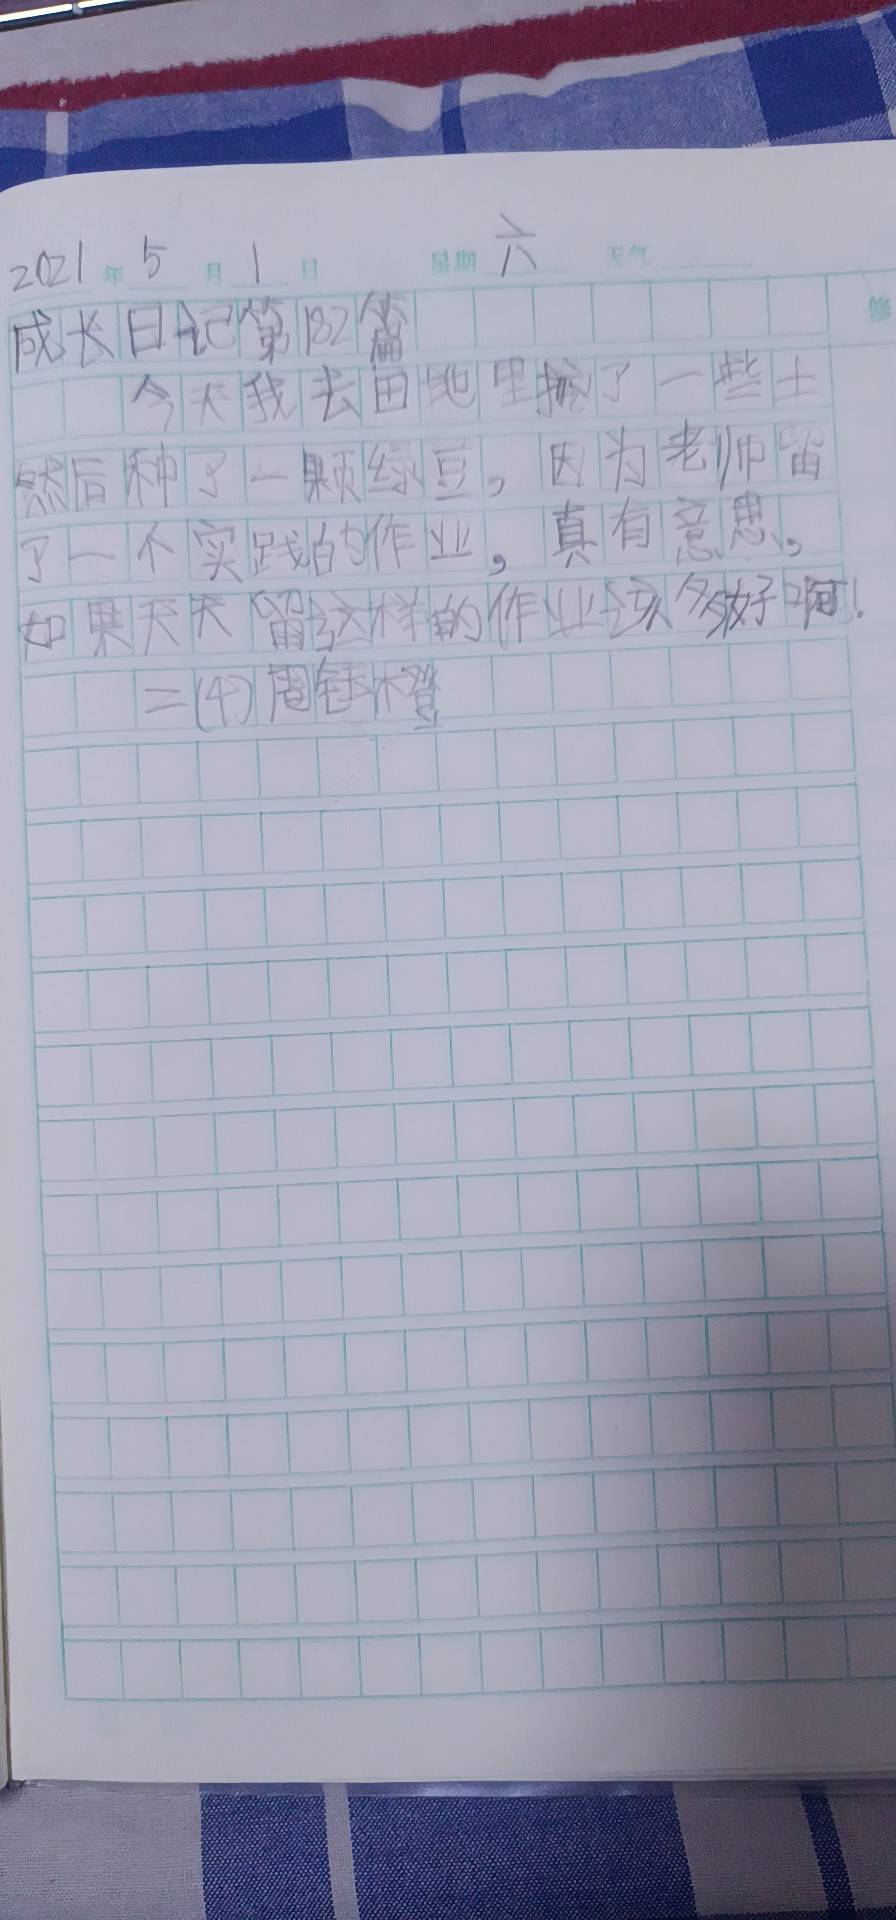 2021年5月1日 星期六 天气
成长日记第182篇
今天我去田地里挖了一些土
然后种了一颗绿豆，因为老师留
了一个实践的作业，真有意思。
如果天天留这样的作业该多好啊！
二(4)周